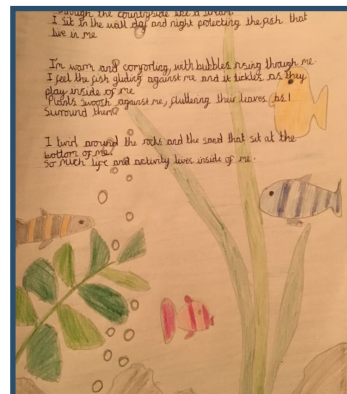 through the countryside like a stream
I sit in the wall day and night protecting the fish that
live in me

I'm warm and comforting, with bubbles rising through me
I feel the fish gliding against me and it tickles as they
play inside of me
Plants swoosh against me, fluttering their leaves as I
surround them

I twirl around the rocks and the sand that sit at the
bottom of me.
So much life and activity lives inside of me.